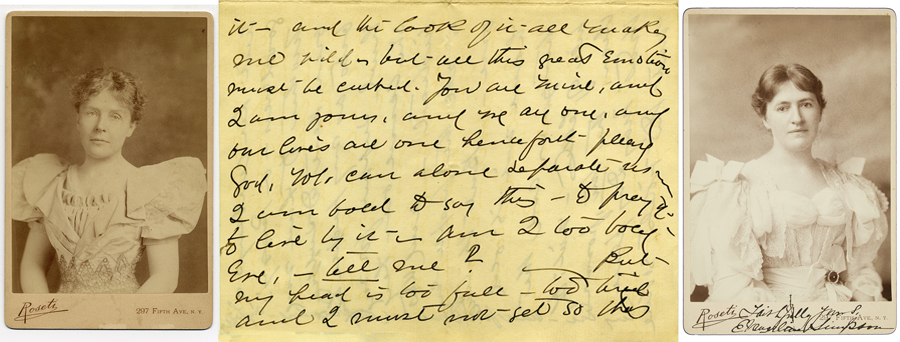 Roseti
297 FIFTH AVE, N.Y.
it – and the look of it all makes
me wild – but all this great Emotion
must be curbed. You are mine, and
I am yours, and we are one, and
our lives are one henceforth please
God, who can alone separate us.
I am bold to say this – to pray &
to live by it – Am I too bold
Eve, – tell me? – But
my head is too full – too tired
and I must not get so this
Roseti
FIFTH AVE, N.Y.
Faithfully Yours,
Evangeline Simpson